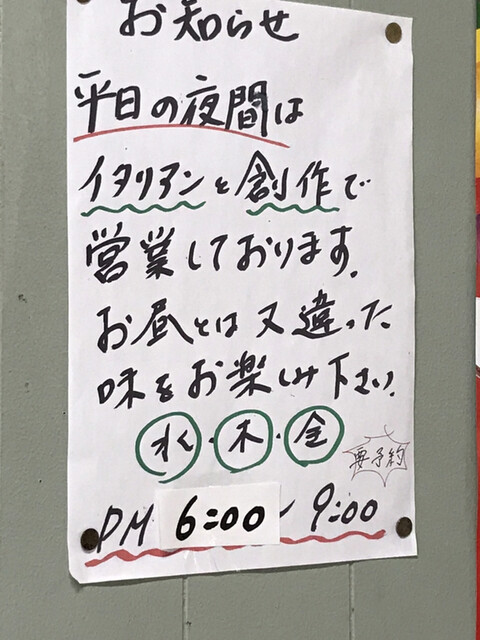 お知らせ
平日の夜間は
イタリアンと創作で
営業しております。
お昼とは又違った
味をお楽しみ下さい。
水・木・金
要予約
PM 6:00~9:00